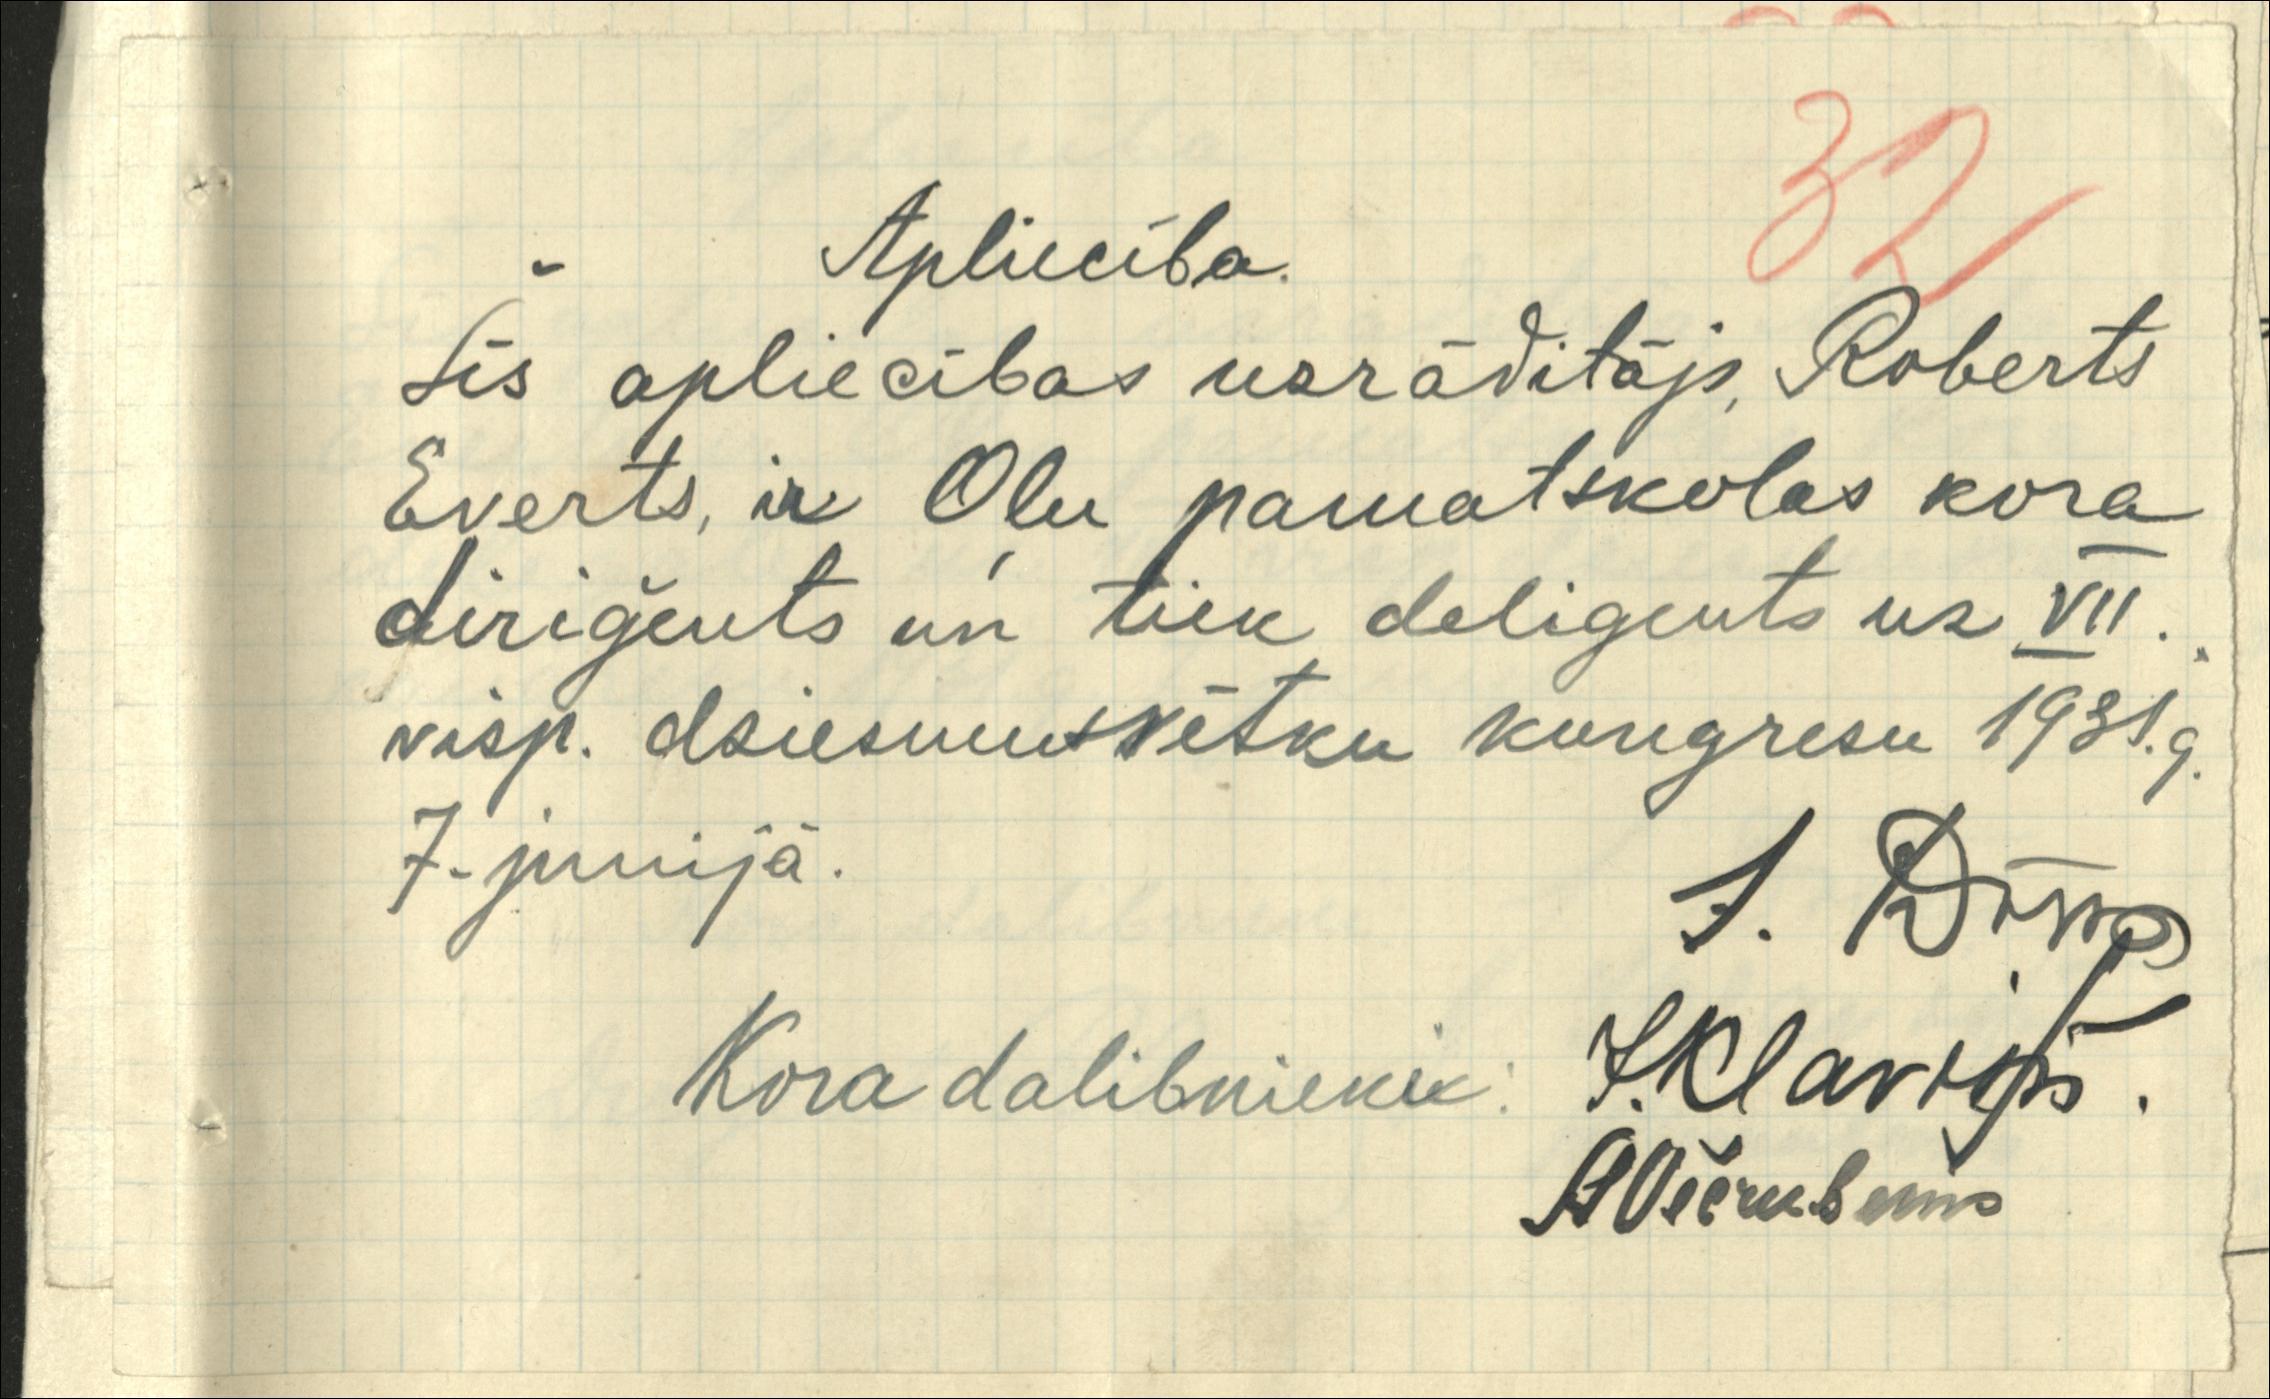 32
Apliecība.
Šīs apliecības uzrādītājs, Roberts
Everts, ir Oļu pamatskolas kora
diriģents un tiek deligents uz VII.
visp. dziesmusvētku kongresu 1931.g.
7. junijā.
Kora dalibnieki:
J.
J. Klaviņš.